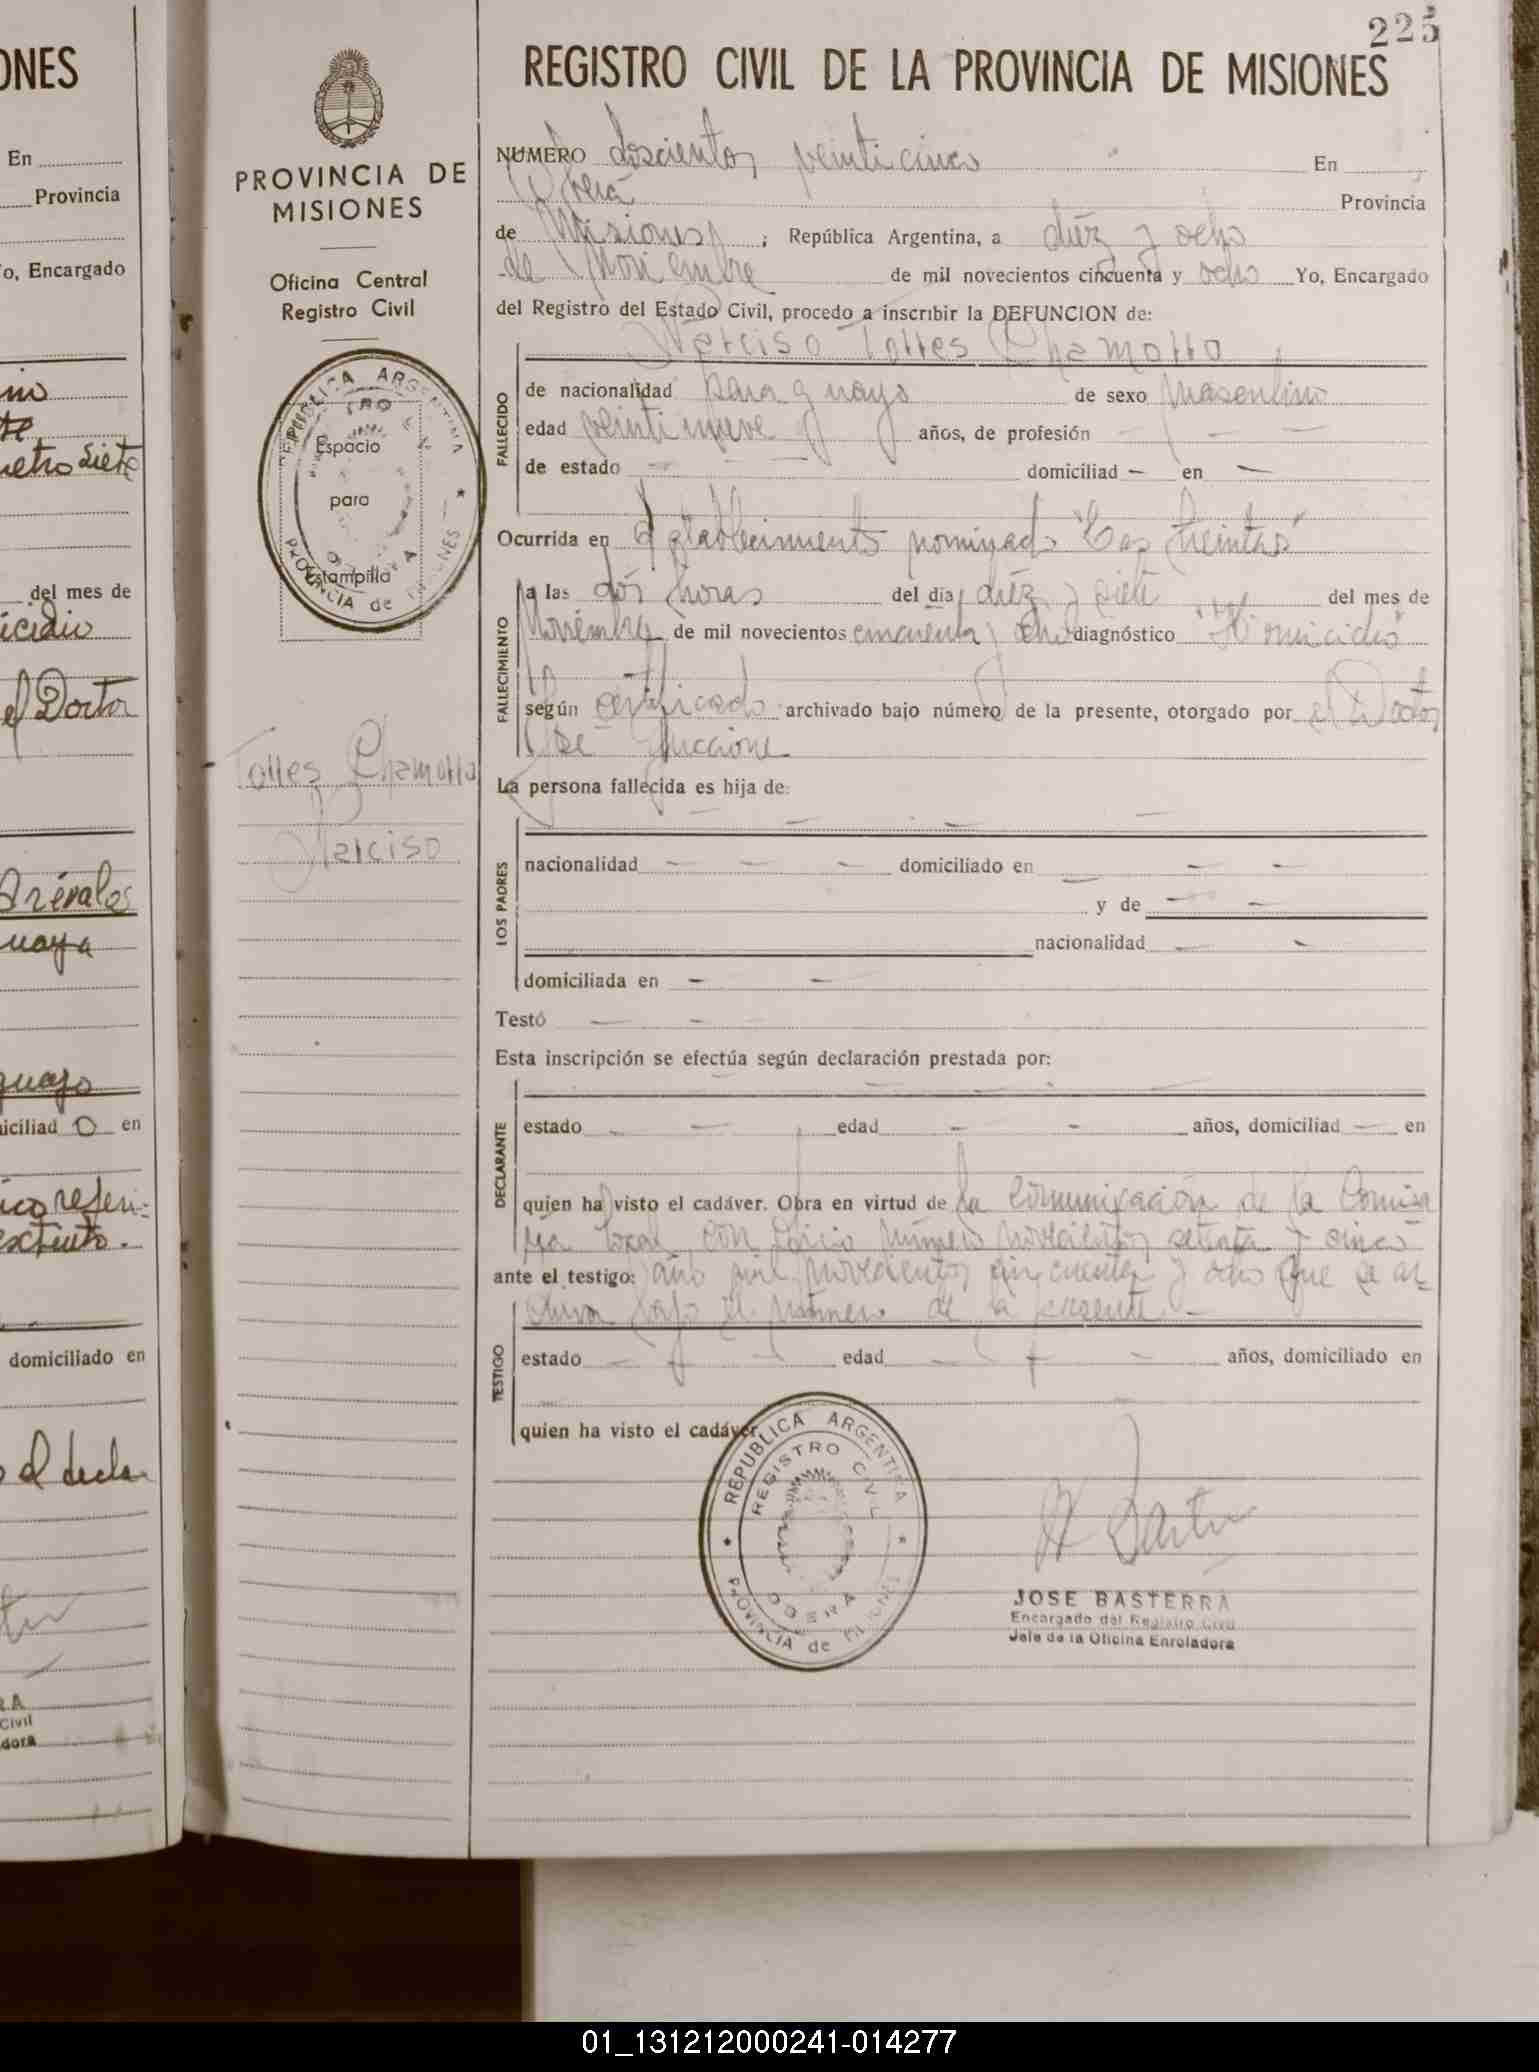 225
ONES
REGISTRO CIVIL DE LA PROVINCIA DE MISIONES
En
Provincia
o, Encargado
del mes de
icidio
el Doctor
Arévalos
uaya
guayo
iciliad o en
ico referi=
extinto.
domiciliado en
o el decla
RA
Civil
dora
PROVINCIA DE
MISIONES
Oficina Central
Registro Civil
REPUBLICA ARGENTINA
Espacio
para
Estampilla
PROVINCIA de MISIONES
Torres Chamorro
Narciso
NUMERO doscientos veinticinco En
Oberá Provincia
de Misiones ; República Argentina, a diéz y ocho
de Noviembre de mil novecientos cincuenta y ocho Yo, Encargado
del Registro del Estado Civil, procedo a inscribir la DEFUNCION de:
Narciso Torres Chamorro
FALLECIDO
de nacionalidad paraguayo de sexo masculino
edad veintinueve años, de profesión —
de estado — domiciliad — en —
Ocurrida en Establecimiento nominado "Las Treinta"
FALLECIMIENTO
a las dós horas del día diéz y siete del mes de
Noviembre de mil novecientos cincuenta y ocho diagnóstico "Homicidio"
según certificado archivado bajo número de la presente, otorgado por el Doctor
José Guccione
La persona fallecida es hija de:
LOS PADRES
nacionalidad — — — domiciliado en — —
y de — —
nacionalidad — —
domiciliada en — —
Testó — —
Esta inscripción se efectúa según declaración prestada por:
DECLARANTE
estado — — edad — — años, domiciliad — en
quien ha visto el cadáver. Obra en virtud de la comunicación de la Comisa
ría local, con oficio número novecientos setenta y cinco
ante el testigo: año mil novecientos cincuenta y ocho que se ar
chiva bajo el número de la presente. —
TESTIGO
estado — — edad — — años, domiciliado en
quien ha visto el cadáver
REPUBLICA ARGENTINA
REGISTRO CIVIL
OBERA
PROVINCIA de MISIONES
JOSE BASTERRA
Encargado del Registro Civil
Jefe de la Oficina Enroladora
01_131212000241-014277